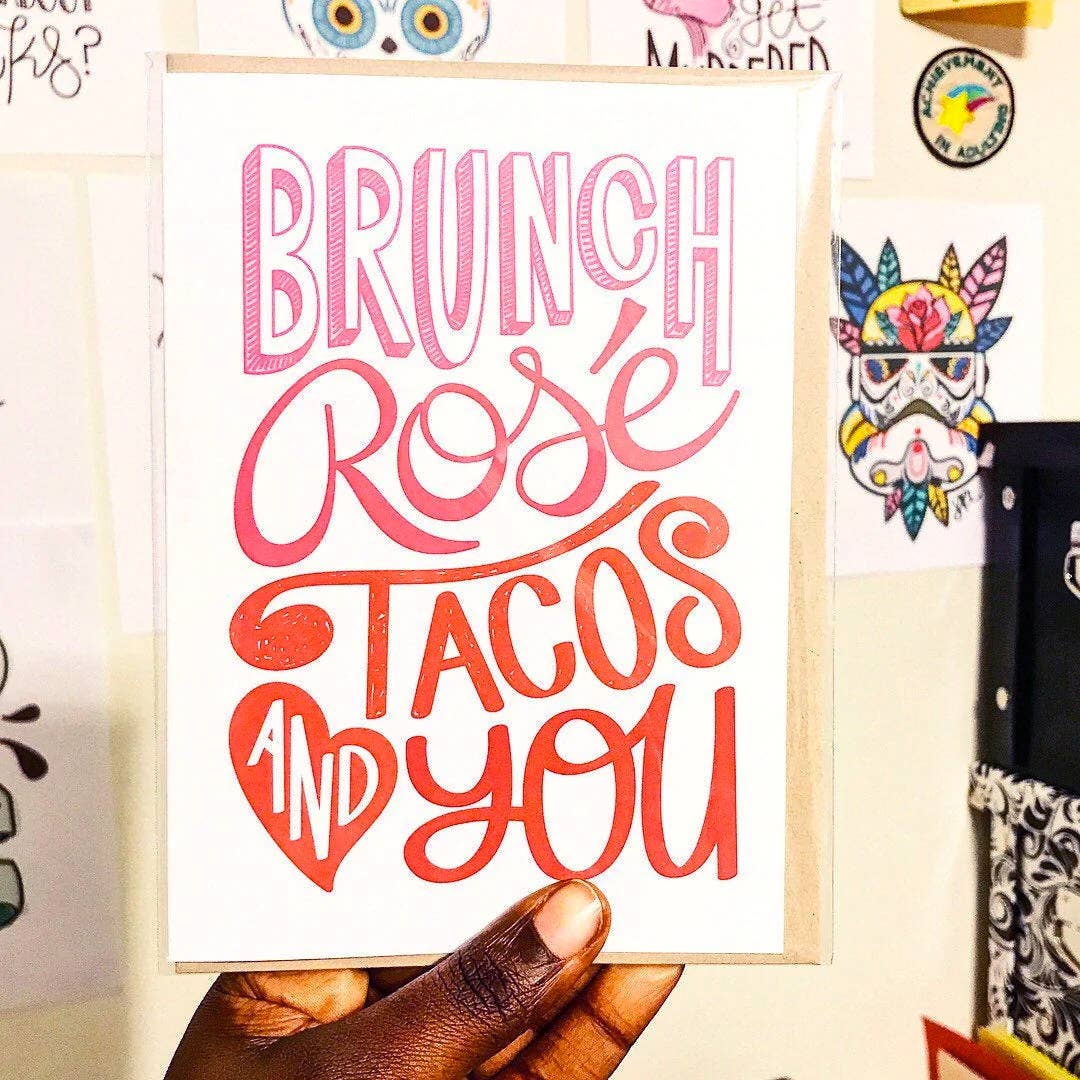 get
MURDERED
ACHIEVEMENT
IN ADULTING
BRUNCH
Rosé
TACOS
AND YOU